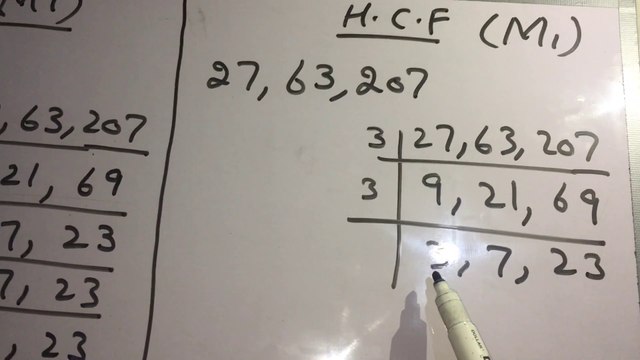 H.C.F (M1)
27, 63, 207
3 | 27, 63, 207
3 | 9, 21, 69
3, 7, 23
, 63, 207
21, 69
7, 23
7, 23
, 23